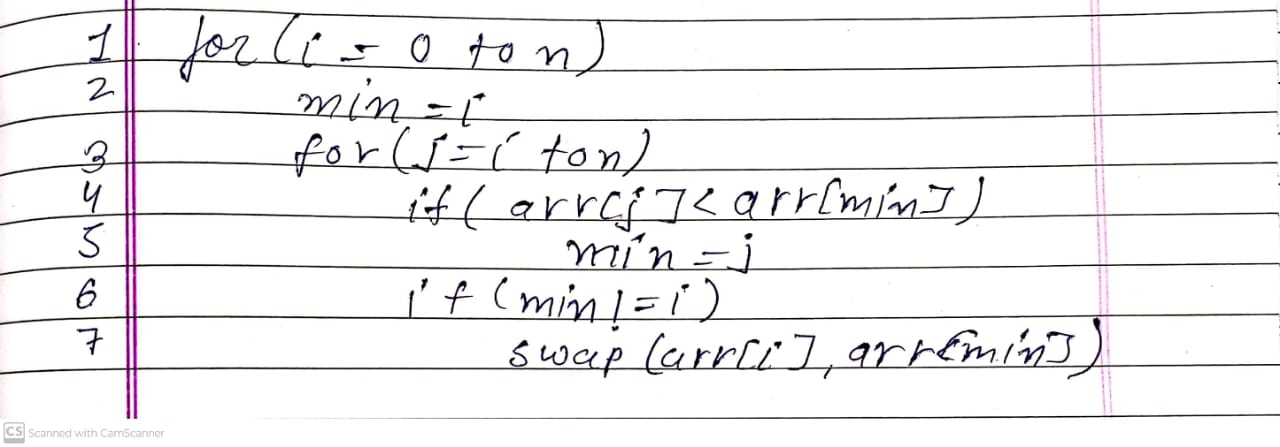 1 for (i = 0 to n)
2 min = i
3 for (j = i to n)
4 if ( arr[j] < arr[min])
5 min = j
6 if (min != i)
7 swap (arr[i], arr[min])
CS Scanned with CamScanner